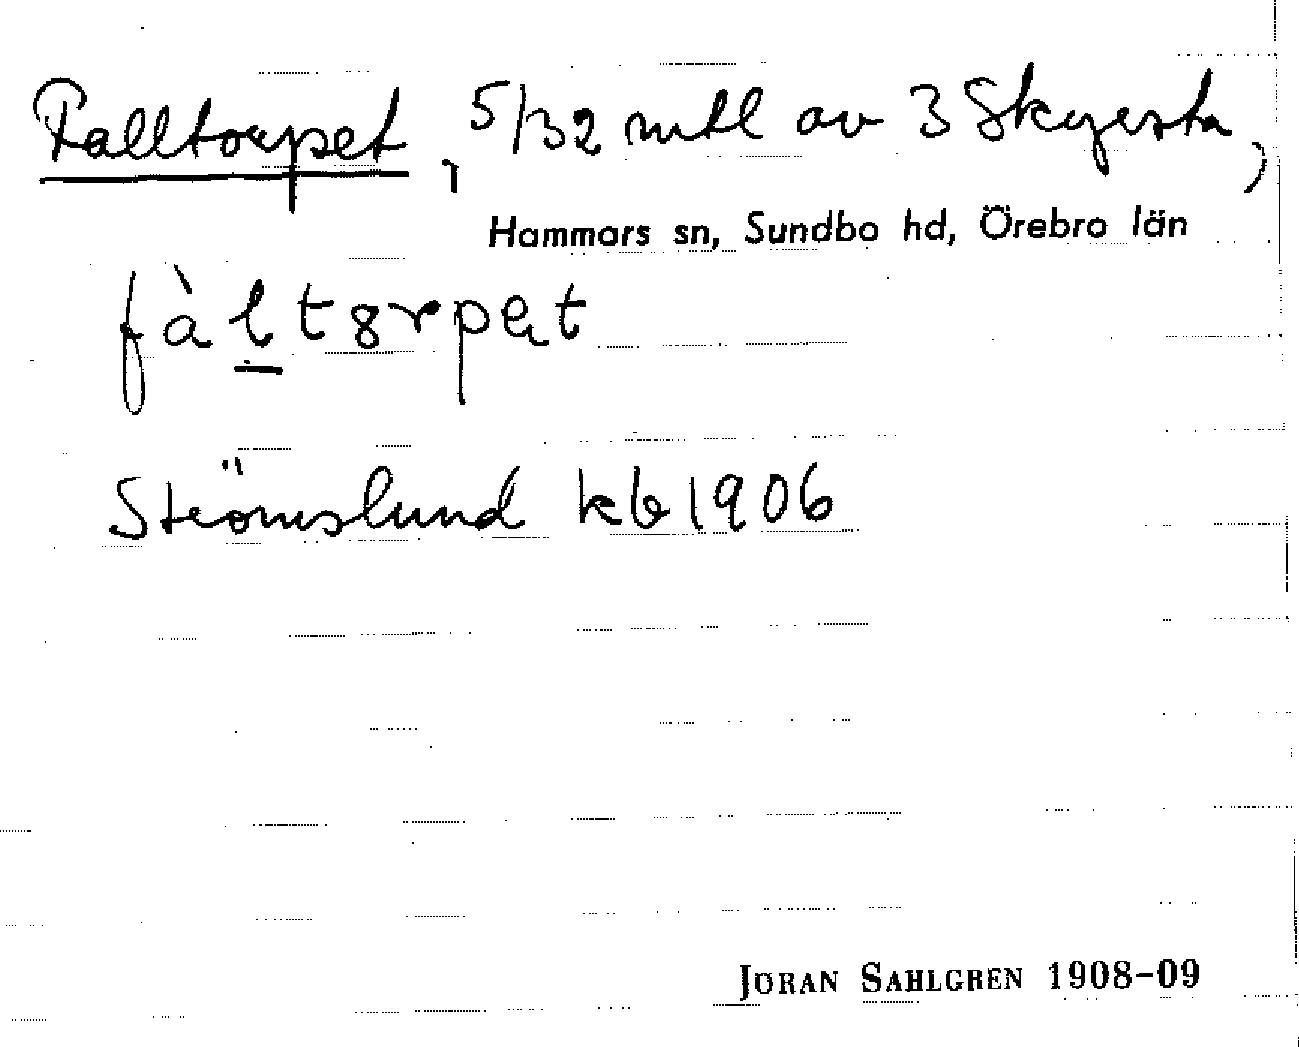 Falltorpet, 5/32 mtl av 3 Skyrsta,
Hammars sn, Sundbo hd, Örebro län
fàltɜrpət
Strömslund kb 1906
JÖRAN SAHLGREN 1908-09